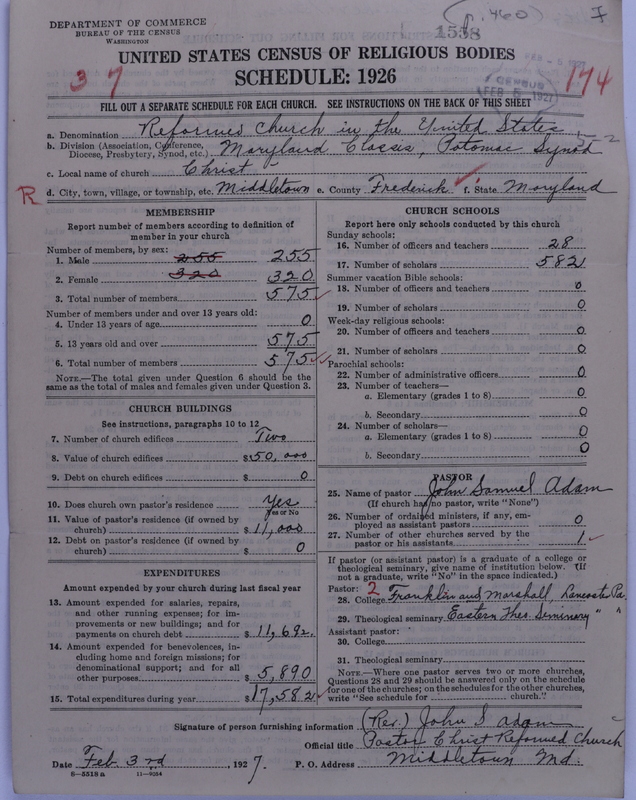 (p. 460)
1538
DEPARTMENT OF COMMERCE
BUREAU OF THE CENSUS
WASHINGTON
UNITED STATES CENSUS OF RELIGIOUS BODIES
37
SCHEDULE: 1926
CENSUS
FEB 5 1927
174
FILL OUT A SEPARATE SCHEDULE FOR EACH CHURCH. SEE INSTRUCTIONS ON THE BACK OF THIS SHEET
a. Denomination Reformed Church in the United States
b. Division (Association, Conference, Diocese, Presbytery, Synod, etc.) Maryland Classis, Potomac Synod
c. Local name of church Christ
R d. City, town, village, or township, etc. Middletown e. County Frederick f. State Maryland
MEMBERSHIP
Report number of members according to definition of member in your church
Number of members, by sex:
1. Male 255 255
2. Female 320 320
3. Total number of members 575
Number of members under and over 13 years old:
4. Under 13 years of age 0
5. 13 years old and over 575
6. Total number of members 575
NOTE.—The total given under Question 6 should be the same as the total of males and females given under Question 3.
CHURCH BUILDINGS
See instructions, paragraphs 10 to 12
7. Number of church edifices Two
8. Value of church edifices $50,000
9. Debt on church edifices $ 0
10. Does church own pastor's residence Yes
Yes or No
11. Value of pastor's residence (if owned by church) $11,000
12. Debt on pastor's residence (if owned by church) $ 0
EXPENDITURES
Amount expended by your church during last fiscal year
13. Amount expended for salaries, repairs, and other running expense; for improvements or new buildings; and for payments on church debt $11,692.
14. Amount expended for benevolences, including home and foreign missions; for denominational support; and for all other purposes $5,890
15. Total expenditures during year $17,582
CHURCH SCHOOLS
Report here only schools conducted by this church
Sunday schools:
16. Number of officers and teachers 28
17. Number of scholars 582
Summer vacation Bible schools:
18. Number of officers and teachers 0
19. Number of scholars 0
Week-day religious schools:
20. Number of officers and teachers 0
21. Number of scholars 0
Parochial schools:
22. Number of administrative officers 0
23. Number of teachers—
a. Elementary (grades 1 to 8) 0
b. Secondary 0
24. Number of scholars—
a. Elementary (grades 1 to 8) 0
b. Secondary 0
PASTOR
25. Name of pastor John Samuel Adam
(If church has no pastor, write "None")
26. Number of ordained ministers, if any, employed as assistant pastors 0
27. Number of other churches served by the pastor or his assistants 1
If pastor (or assistant pastor) is a graduate of a college or theological seminary, give name of institution below. (If not a graduate, write "No" in the space indicated.)
Pastor: 2
28. College Franklin and Marshall, Lancaster Pa.
29. Theological seminary Eastern Theo. Seminary " "
Assistant pastor:
30. College
31. Theological seminary
NOTE.—Where one pastor serves two or more churches, Questions 28 and 29 should be answered only on the schedule for one of the churches; on the schedules for the other churches, write "See schedule for church."
Signature of person furnishing information (Rev.) John S. Adam
Official title Pastor Christ Reformed Church
Date Feb 3rd, 1927. P. O. Address Middletown Md.
8—5518 a 11—9054